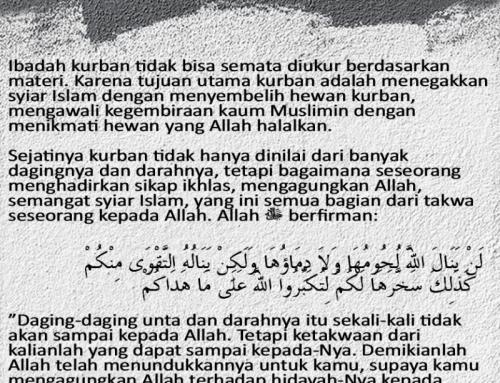 Ibadah kurban tidak bisa semata diukur berdasarkan
materi. Karena tujuan utama kurban adalah menegakkan
syiar Islam dengan menyembelih hewan kurban,
mengawali kegembiraan kaum Muslimin dengan
menikmati hewan yang Allah halalkan.
Sejatinya kurban tidak hanya dinilai dari banyak
dagingnya dan darahnya, tetapi bagaimana seseorang
menghadirkan sikap ikhlas, mengagungkan Allah,
semangat syiar Islam, yang ini semua bagian dari takwa
seseorang kepada Allah. Allah ﷻ berfirman:
لَنْ يَنَالَ اللَّهَ لُحُومُهَا وَلَا دِمَاؤُهَا وَلَكِنْ يَنَالُهُ التَّقْوَى مِنْكُمْ
كَذَلِكَ سَخَّرَهَا لَكُمْ لِتُكَبِّرُوا اللَّهَ عَلَى مَا هَدَاكُمْ
"Daging-daging unta dan darahnya itu sekali-kali tidak
akan sampai kepada Allah. Tetapi ketakwaan dari
kalianlah yang dapat sampai kepada-Nya. Demikianlah
Allah telah menundukkannya untuk kamu, supaya kamu
mengagungkan Allah terhadap hidayah-Nya kepada